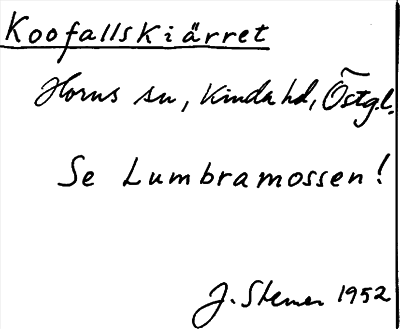 Koofallskiärret
Horns sn, Kinda hd, Östgl.
Se Lumbramossen!
J. 1952